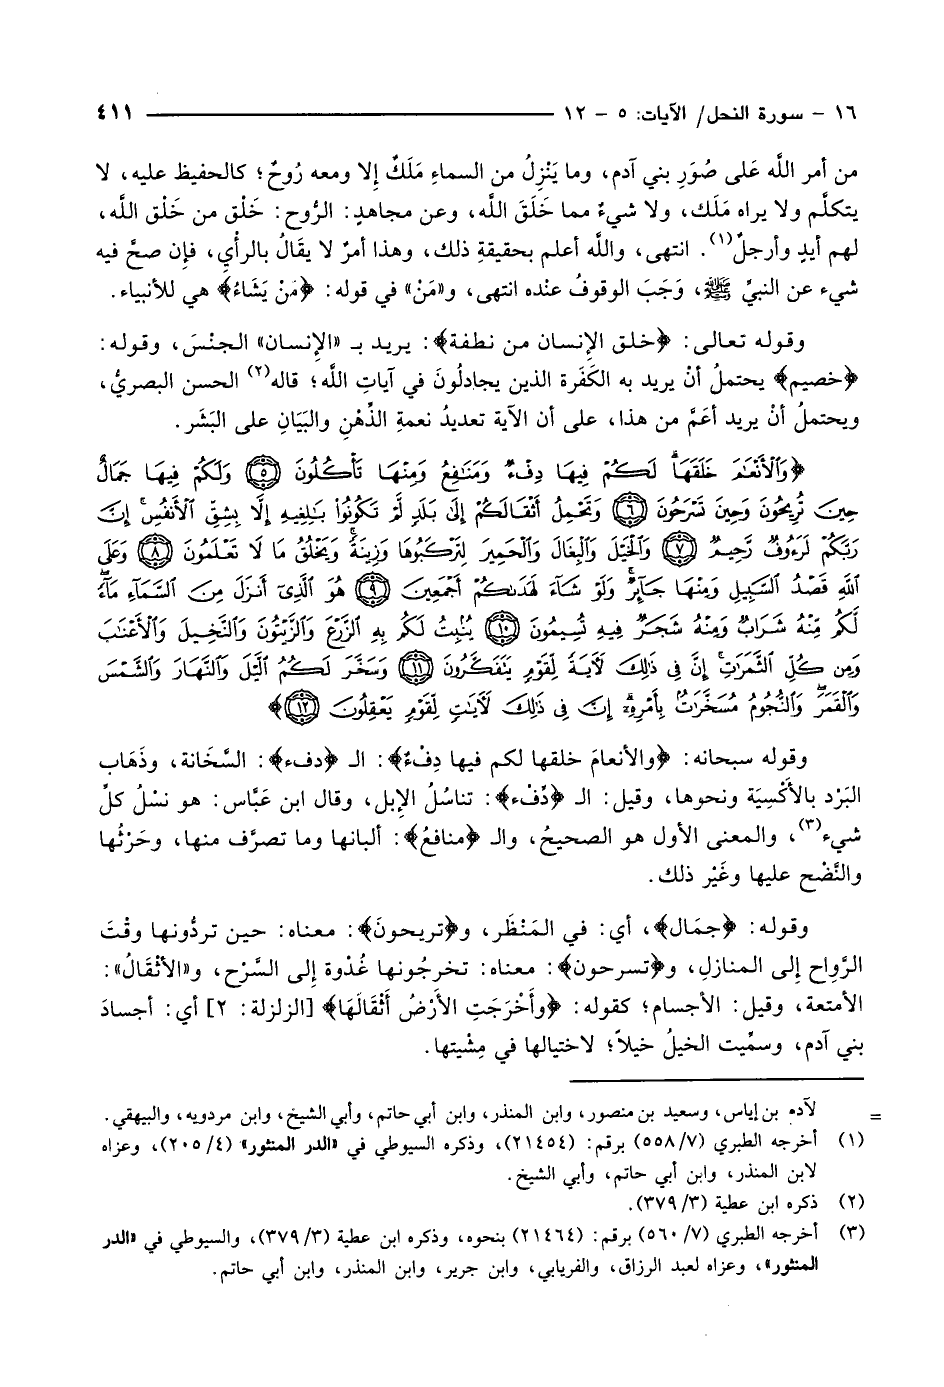 ١٦ - سورة النحل/ الآيات: ٥ - ١٢ ٤١١
من أمر اللَّه عَلى صُوَرِ بني آدم، وما يَنْزِلُ من السماءِ مَلَكٌ إلا ومعه رُوحٌ؛ كالحفيظ عليه، لا
يتكلَّم ولا يراه مَلَك، ولا شيءٌ مما خَلَقَ اللَّه، وعن مجاهدٍ: الرُّوح: خَلْق من خَلْق اللَّه،
لهم أيدٍ وأرجلٌ(١). انتهى، واللَّه أعلم بحقيقةِ ذلك، وهذا أمرٌ لا يقَالُ بالرأْيِ، فإِن صحَّ فيه
شيء عن النبيِّ ﷺ، وَجَبَ الوقوفُ عنده انتهى، و«مَنْ» في قوله: ﴿مَنْ يَشَاءُ﴾ هي للأنبياء.
وقوله تعالى: ﴿خلق الإِنسان من نطفة﴾: يريد بـ «الإِنسان» الجنْسَ، وقوله:
﴿خصيم﴾ يحتملُ أنْ يريد به الكَفَرة الذين يجادلُونَ في آياتِ اللَّه؛ قاله(٢) الحسن البصريُّ،
ويحتملُ أنْ يريد أعَمَّ من هذا، على أن الآية تعديدُ نعمةِ الذِّهْنِ والبَيَانِ على البَشَر.
﴿وَالْأَنْعَامَ خَلَقَهَا لَكُمْ فِيهَا دِفْءٌ وَمَنَافِعُ وَمِنْهَا تَأْكُلُونَ ٥ وَلَكُمْ فِيهَا جَمَالٌ
حِينَ تُرِيحُونَ وَحِينَ تَسْرَحُونَ ٦ وَتَحْمِلُ أَثْقَالَكُمْ إِلَى بَلَدٍ لَّمْ تَكُونُوا بَالِغِيهِ إِلَّا بِشِقِّ الْأَنْفُسِ إِنَّ
رَبَّكُمْ لَرَءُوفٌ رَّحِيمٌ ٧ وَالْخَيْلَ وَالْبِغَالَ وَالْحَمِيرَ لِتَرْكَبُوهَا وَزِينَةً وَيَخْلُقُ مَا لَا تَعْلَمُونَ ٨ وَعَلَى
اللَّهِ قَصْدُ السَّبِيلِ وَمِنْهَا جَائِرٌ وَلَوْ شَاءَ لَهَدَاكُمْ أَجْمَعِينَ ٩ هُوَ الَّذِي أَنْزَلَ مِنَ السَّمَاءِ مَاءً
لَّكُمْ مِّنْهُ شَرَابٌ وَمِنْهُ شَجَرٌ فِيهِ تُسِيمُونَ ١٠ يُنْبِتُ لَكُمْ بِهِ الزَّرْعَ وَالزَّيْتُونَ وَالنَّخِيلَ وَالْأَعْنَابَ
وَمِنْ كُلِّ الثَّمَرَاتِ إِنَّ فِي ذَلِكَ لَآيَةً لِّقَوْمٍ يَتَفَكَّرُونَ ١١ وَسَخَّرَ لَكُمُ اللَّيْلَ وَالنَّهَارَ وَالشَّمْسَ
وَالْقَمَرَ وَالنُّجُومُ مُسَخَّرَاتٌ بِأَمْرِهِ إِنَّ فِي ذَلِكَ لَآيَاتٍ لِّقَوْمٍ يَعْقِلُونَ ١٢﴾
وقوله سبحانه: ﴿والأنعامَ خلقها لكم فيها دِفْءٌ﴾: الـ ﴿دفء﴾: السَّخَانة، وذَهَاب
البَرْد بالأَكْسِيَة ونحوها، وقيل: الـ ﴿دِّفْء﴾: تناسُلُ الإِبل، وقال ابن عَبَّاس: هو نسْلُ كلِّ
شيء(٣)، والمعنى الأول هو الصحيحُ، والـ ﴿منافعُ﴾: ألبانها وما تصرَّف منها، وحَرْثُها
والنَّضْح عليها وغَيْر ذلك.
وقوله: ﴿جمَال﴾، أي: في المَنْظَر، و﴿تريحون﴾: معناه: حين تردُّونها وقْتَ
الرَّواح إلى المنازلِ، و﴿تسرحون﴾: معناه: تخرجُونها غُدْوة إلى السَّرْح، و«الأثْقَالُ»:
الأمتعة، وقيل: الأجسام؛ كقوله: ﴿وأَخْرَجَتِ الأَرْضُ أَثْقَالَهَا﴾ [الزلزلة: ٢] أي: أجسادَ
بني آدم، وسمِّيت الخيلُ خيلاً؛ لاختيالها في مِشْيتها.
= لآدم بن إياس، وسعيد بن منصور، وابن المنذر، وابن أبي حاتم، وأبي الشيخ، وابن مردويه، والبيهقي.
(١) أخرجه الطبري (٧/ ٥٥٨) برقم: (٢١٤٥٤)، وذكره السيوطي في «الدر المنثور» (٤/ ٢٠٥)، وعزاه
لابن المنذر، وابن أبي حاتم، وأبي الشيخ.
(٢) ذكره ابن عطية (٣/ ٣٧٩).
(٣) أخرجه الطبري (٧/ ٥٦٠) برقم: (٢١٤٦٤) بنحوه، وذكره ابن عطية (٣/ ٣٧٩)، والسيوطي في «الدر
المنثور»، وعزاه لعبد الرزاق، والفريابي، وابن جرير، وابن المنذر، وابن أبي حاتم.